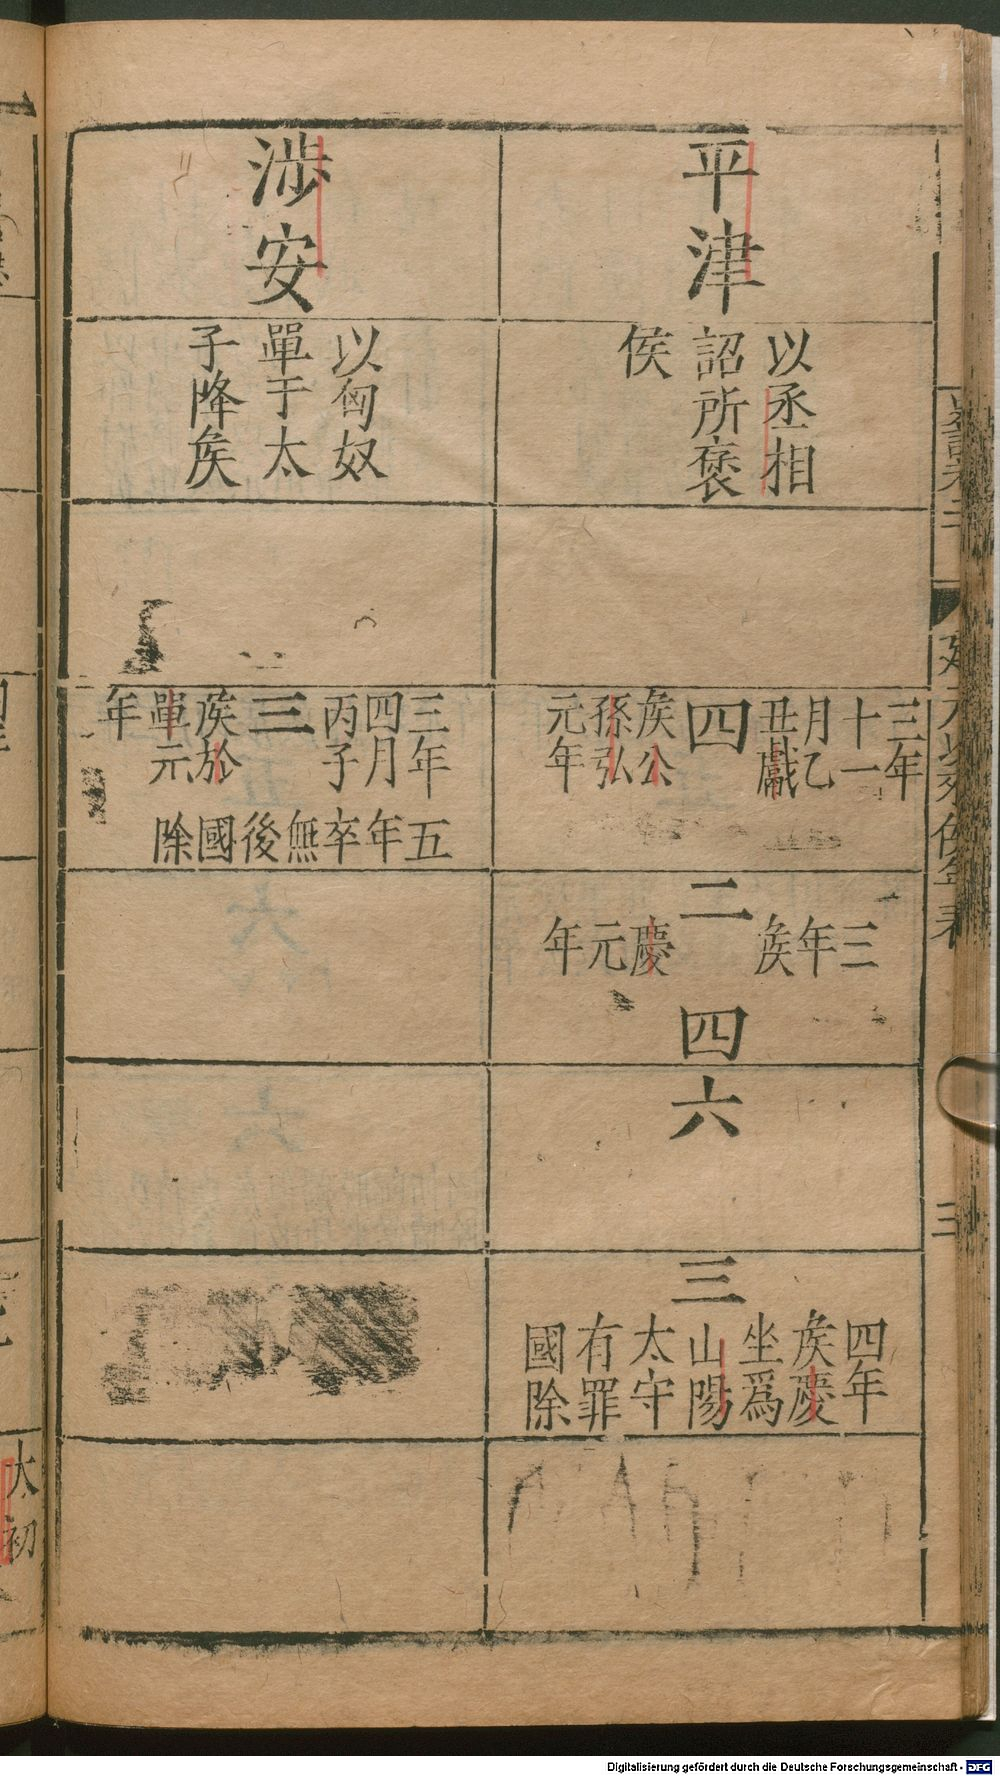 平津
以丞相
詔所褒
侯
三年
十一
月乙
丑獻
四
矦公
孫弘
元年
二
三
年
矦
慶
元
年
四
六
三
四年
矦慶
坐爲
山陽
太守
有罪
國除
涉安
以匈奴
單于太
子降矦
三年
四月
丙子
三
矦於
單元
年
五
年
卒
無
後
國
除
三
太初
Digitalisierung gefördert durch die Deutsche Forschungsgemeinschaft - DFG